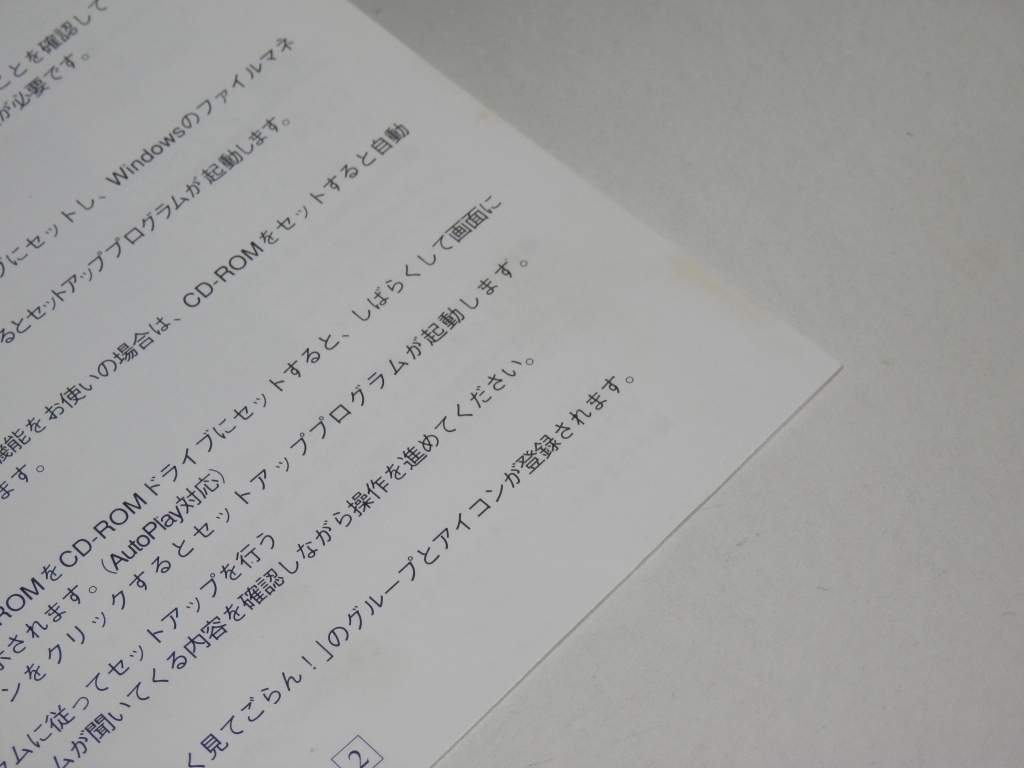 ことを確認して
が必要です。
ブにセットし、Windowsのファイルマネ
るとセットアッププログラムが起動します。
機能をお使いの場合は、CD-ROMをセットすると自動
ます。
ROMをCD-ROMドライブにセットすると、しばらくして画面に
示されます。(AutoPlay対応)
ンをクリックするとセットアッププログラムが起動します。
ラムに従ってセットアップを行う
ムが聞いてくる内容を確認しながら操作を進めてください。
く見てごらん!」のグループとアイコンが登録されます。
2